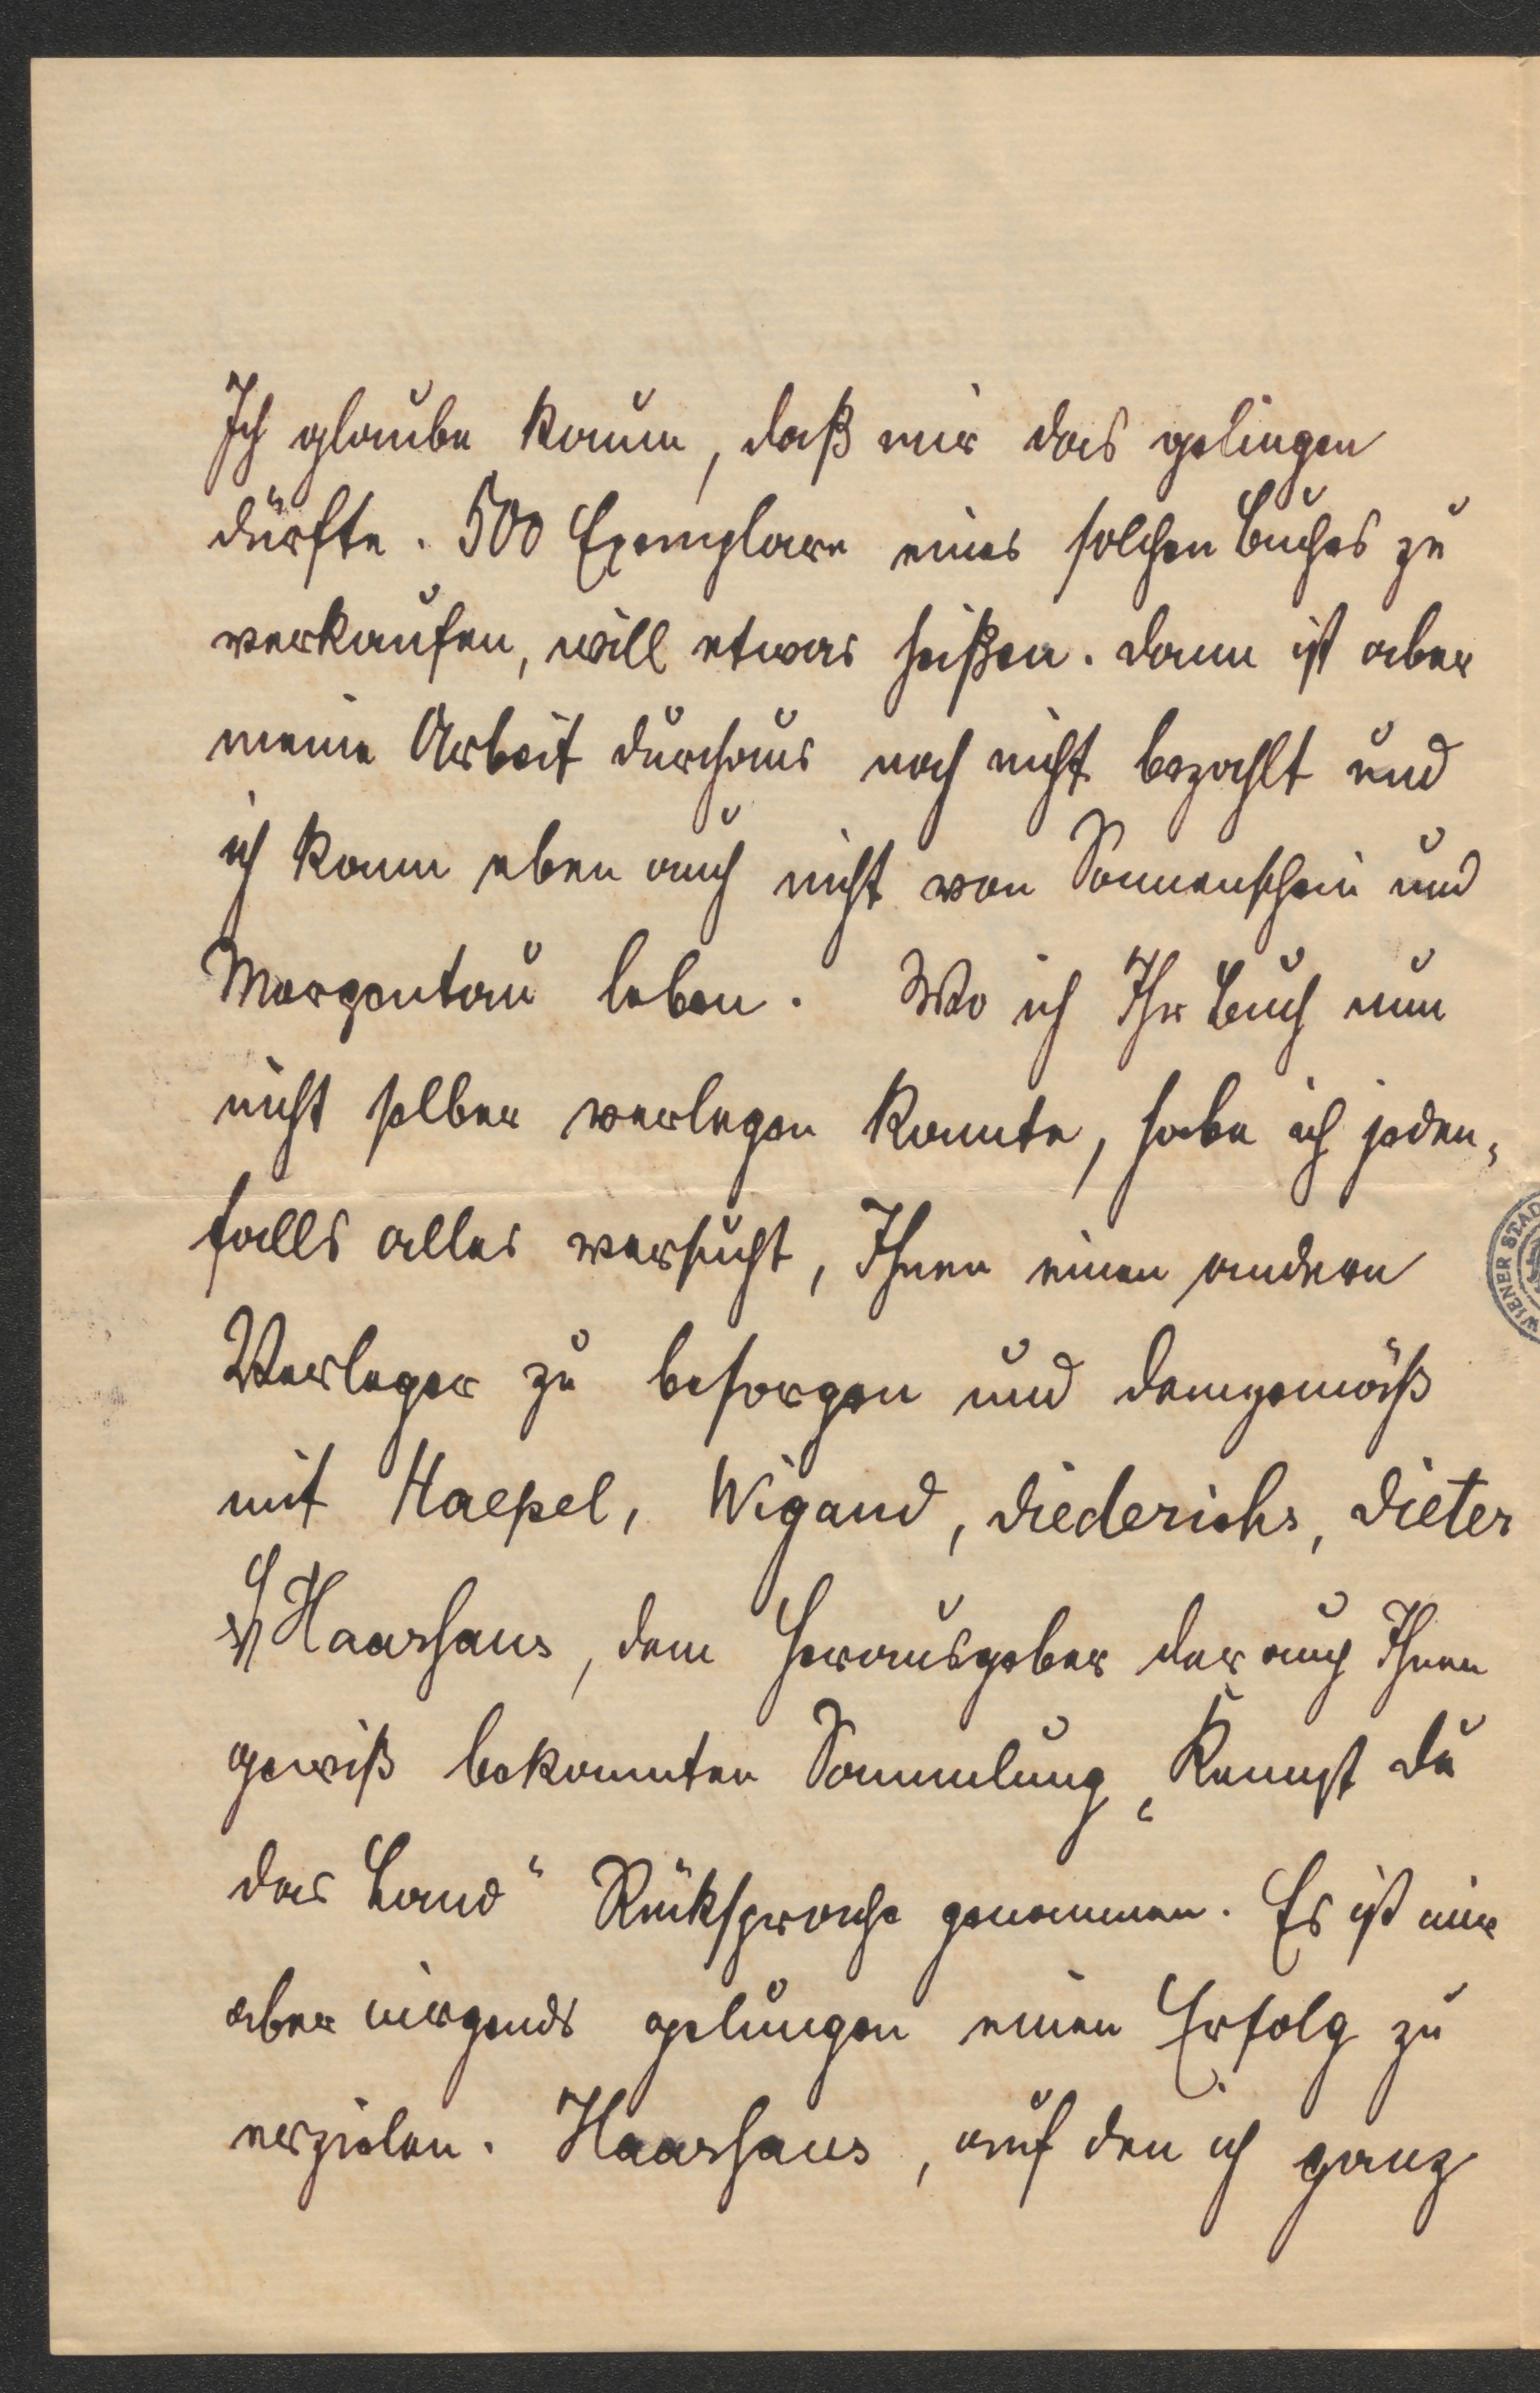 Ich glaube kaum, daß mir das gelingen
dürfte. 500 Exemplare eines solchen Buches zu
verkaufen, will etwas heißen. Dann ist aber
meine Arbeit durchaus noch nicht bezahlt und
ich kann eben auch nicht von Sonnenschein und
Morgentau leben. Wo ich Ihr Buch nun
nicht selber verlegen konnte, habe ich jeden-
falls alles versucht, Ihnen einen andern
Verleger zu besorgen und demgemäß
mit Haessel, Wigand, Diederichs, Dieter
Haarhaus, dem Herausgeber der auch Ihnen
gewiß bekannten Sammlung „Kennst du
das Land" Rüksprache genommen. Es ist mir
aber nirgends gelungen einen Erfolg zu
erzielen. Haarhaus, auf den ich ganz
WIENER STAD